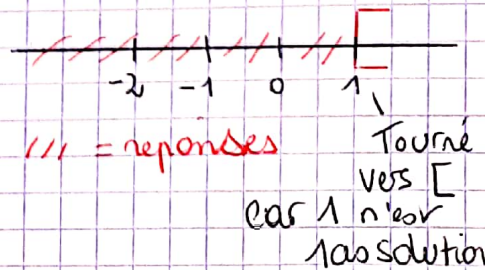 -2 -1 0 1
/// = reponses
Tourné
vers [
car 1 n'est
pas solution